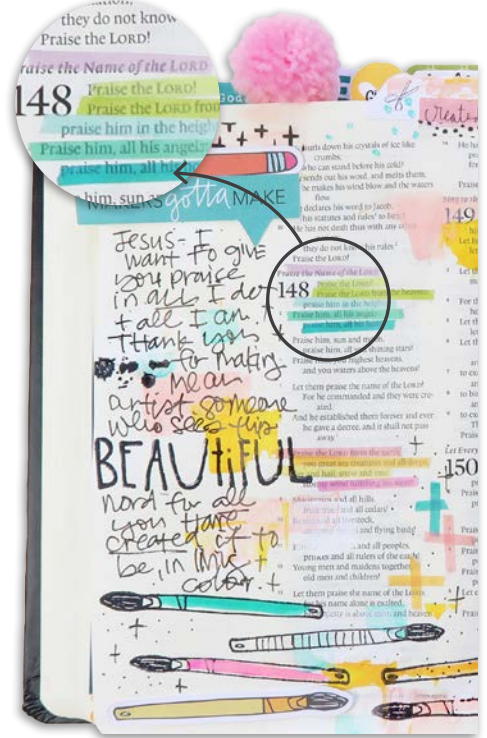 they do not know
Praise the LORD!
Praise the Name of the LORD
148 Praise the LORD!
Praise the LORD from
praise him in the heigh
Praise him, all his angels
praise him, all his
him, sun
MAKERS gotta MAKE
Jesus- I
want to give
you praise
in all I do
+ all I am.
Thank you
for making
me an
artist someone
who sees this
BEAUTIFUL
world for all
you have
created it to
be, in link +
color +
God
Create
hurls down his crystals of ice like
crumbs;
who can stand before his cold?
sends out his word, and melts them;
he makes his wind blow and the waters
flow.
declares his word to Jacob,
his statutes and rules to
He has not dealt thus with any
they do not know his rules
Praise the LORD!
Praise the Name of the LORD
148 Praise the LORD!
Praise the LORD from the heavens;
praise him in the heights
Praise him, all his angels
praise him, all his
Praise him, sun and moon,
praise him, all you shining stars!
Praise him, you highest heavens,
and you waters above the heavens!
Let them praise the name of the LORD!
For he commanded and they were cre-
ated.
And he established them forever and ever;
he gave a decree, and it shall not pass
away.
Praise the LORD from the earth,
you great sea creatures and all deeps,
and hail, snow and mist,
wind fulfilling his word!
Mountains and all hills,
fruit trees and all cedars!
Beasts and all livestock,
and flying birds!
and all peoples,
princes and all rulers of the earth!
Young men and maidens together,
old men and children!
Let them praise the name of the LORD,
for his name alone is exalted;
majesty is above earth and heaven
149
Let Every
150